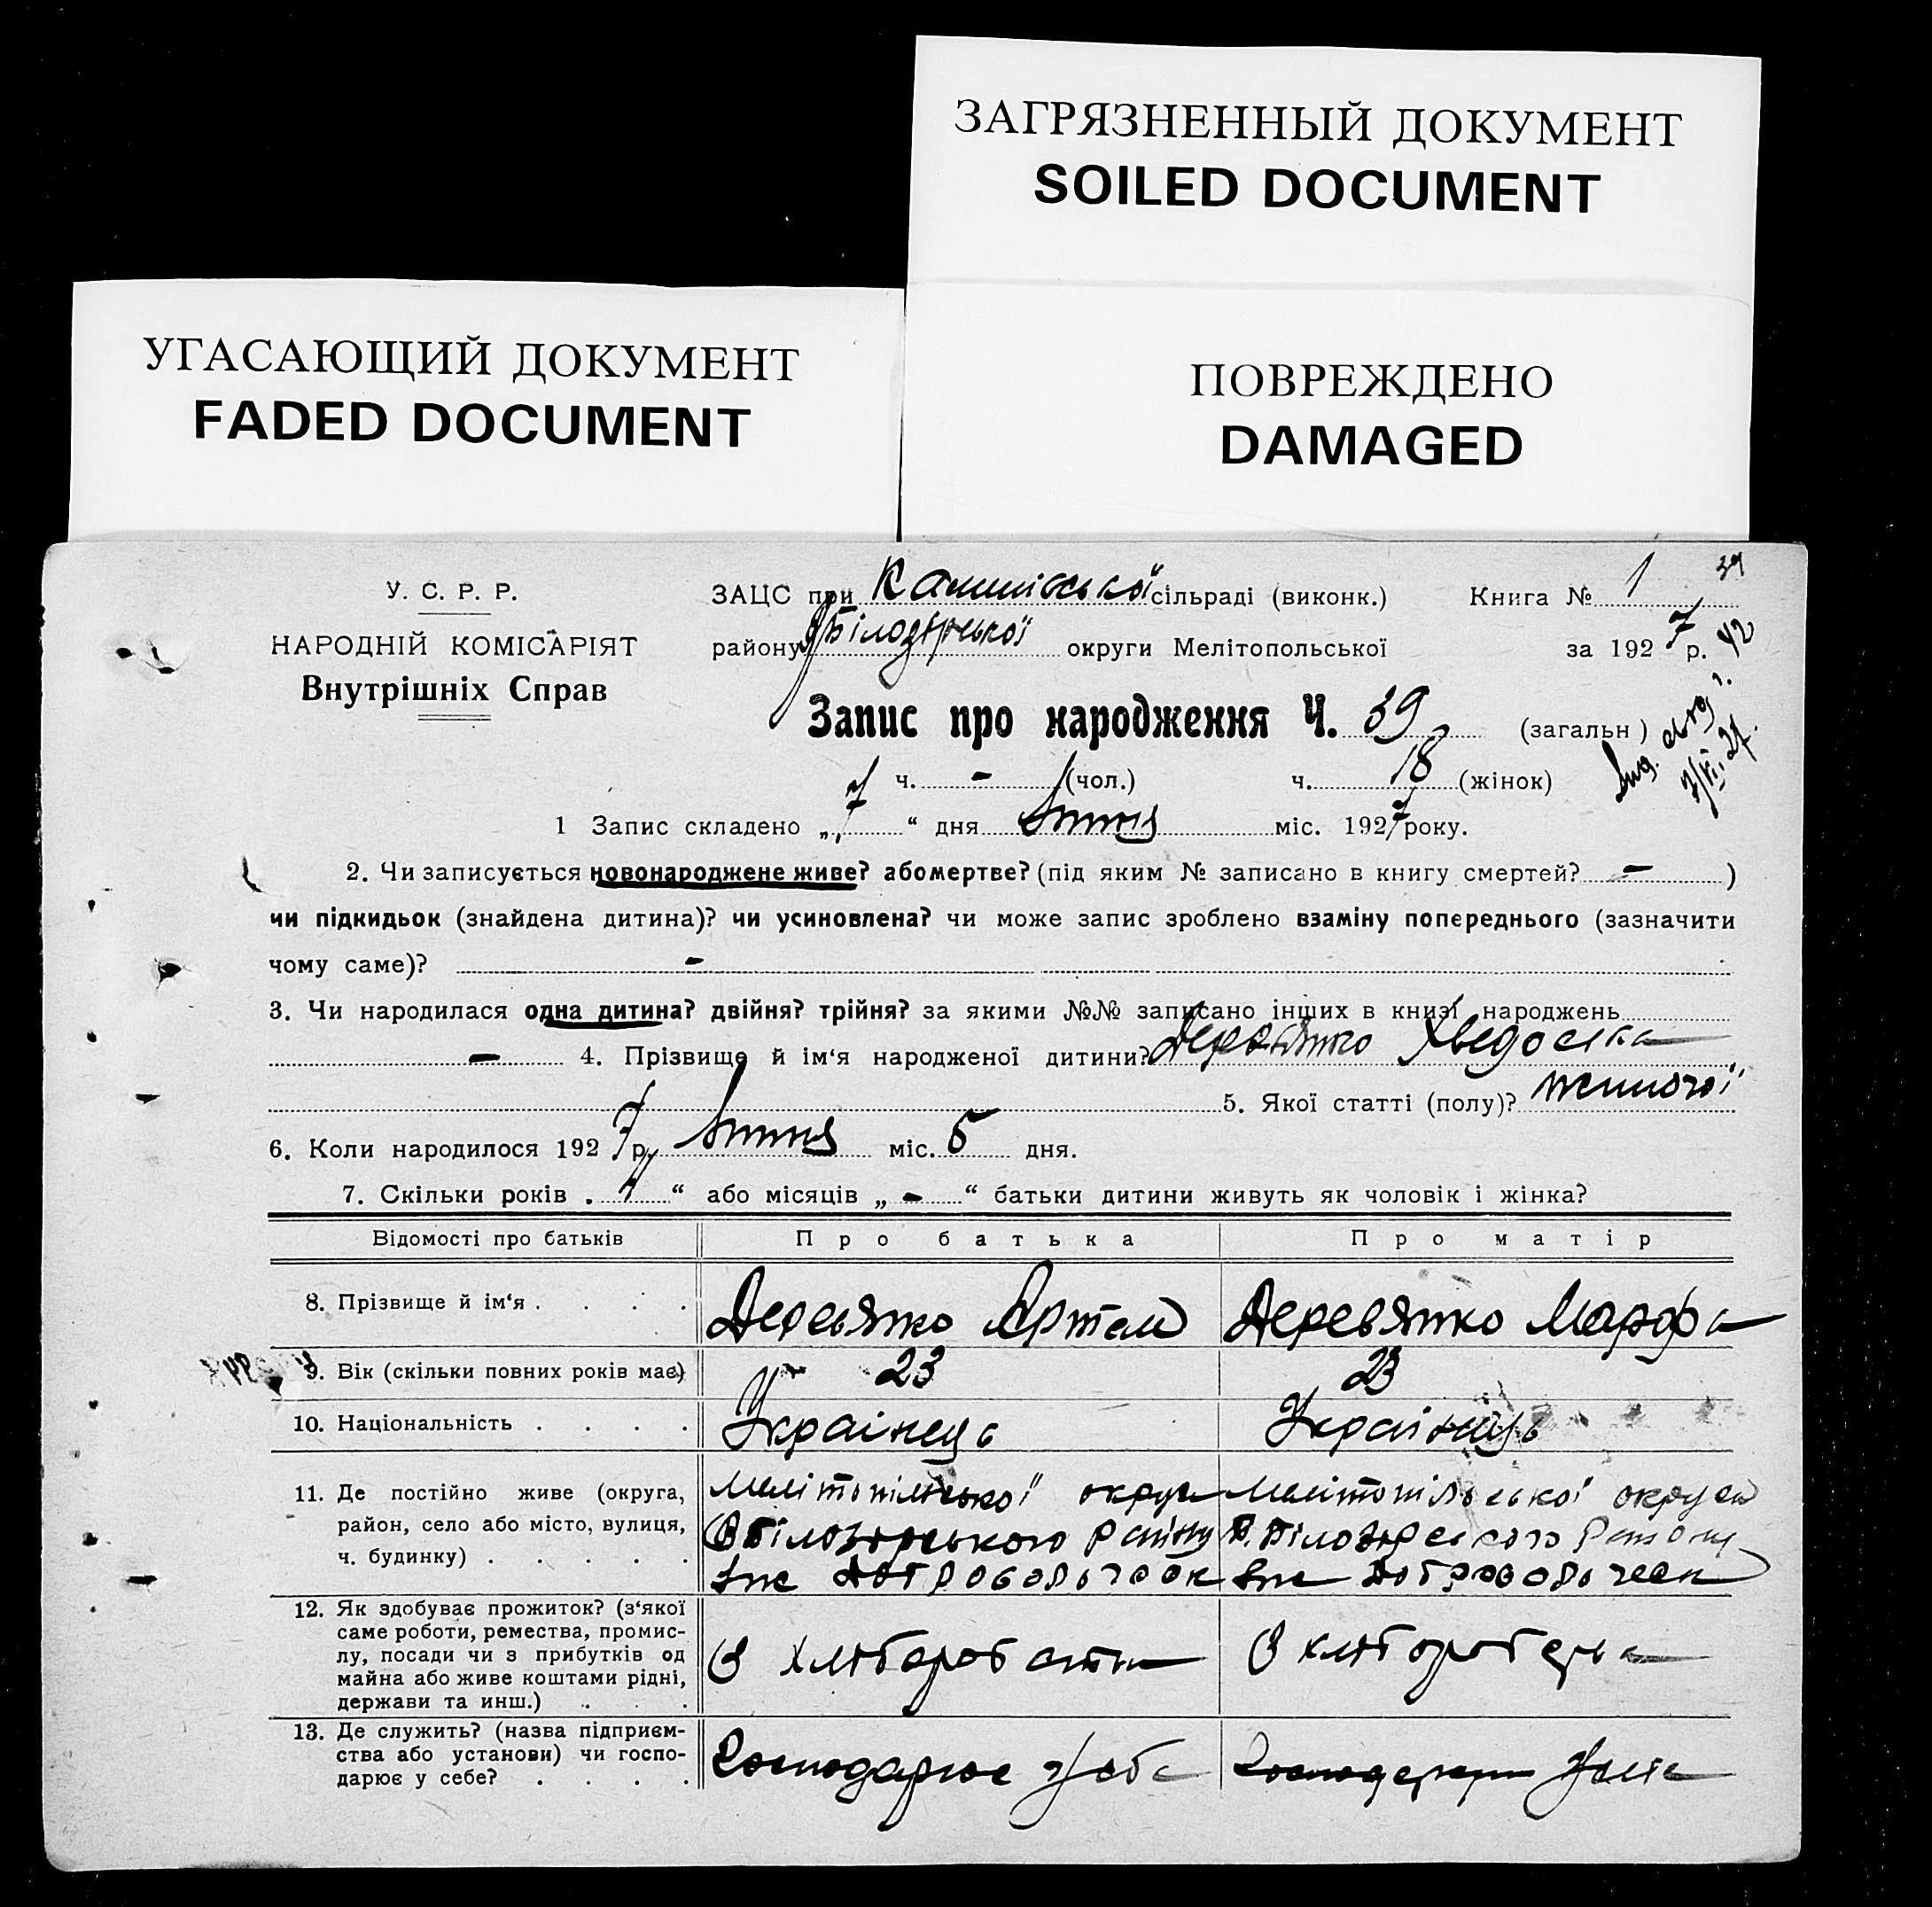 ЗАГРЯЗНЕННЫЙ ДОКУМЕНТ
SOILED DOCUMENT
УГАСАЮЩИЙ ДОКУМЕНТ
FADED DOCUMENT
ПОВРЕЖДЕНО
DAMAGED
39
У. С. Р. Р.
НАРОДНІЙ КОМІСАРІЯТ
Внутрішніх Справ
ЗАЦС при сільраді (виконк.) Книга № 1
району округи Мелітопольської за 1927 р. 42
Запис про народження Ч. 39 (загальн)
ч. - (чол.) ч. 18 (жінок)
1 Запис складено „7“ дня Липня міс. 1927 року.
2. Чи записується новонароджене живе? або мертве? (під яким № записано в книгу смертей? - )
чи підкидьок (знайдена дитина)? чи усиновлена? чи може запис зроблено взаміну попереднього (зазначити
чому саме)? -
3. Чи народилася одна дитина? двійня? трійня? за якими №№ записано інших в книзі народжень
- 4. Прізвище й ім‘я народженої дитини? Деревянко Хведоска
5. Якої статті (полу)? жиночої
6. Коли народилося 1927 р. Липня міс. 5 дня.
7. Скільки років або місяців „ - “ батьки дитини живуть як чоловік і жінка?
Відомості про батьків Про батька Про матір
8. Прізвище й ім‘я . . . . Деревянко Артем Деревянко Марфа
9. Вік (скільки повних років має) 23 23
10. Національність . . . . Українець Українець
11. Де постійно живе (округа,
район, село або місто, вулиця,
ч. будинку) . . . . .
Мелітопільської округи Мелітопільської округи
району району
12. Як здобуває прожиток? (з‘якої
саме роботи, ремества, промис-
лу, посади чи з прибутків од
майна або живе коштами рідні,
держави та инш.) . . .
13. Де служить? (назва підприєм-
ства або установи) чи госпо-
дарює у себе? . . . .
Господарює